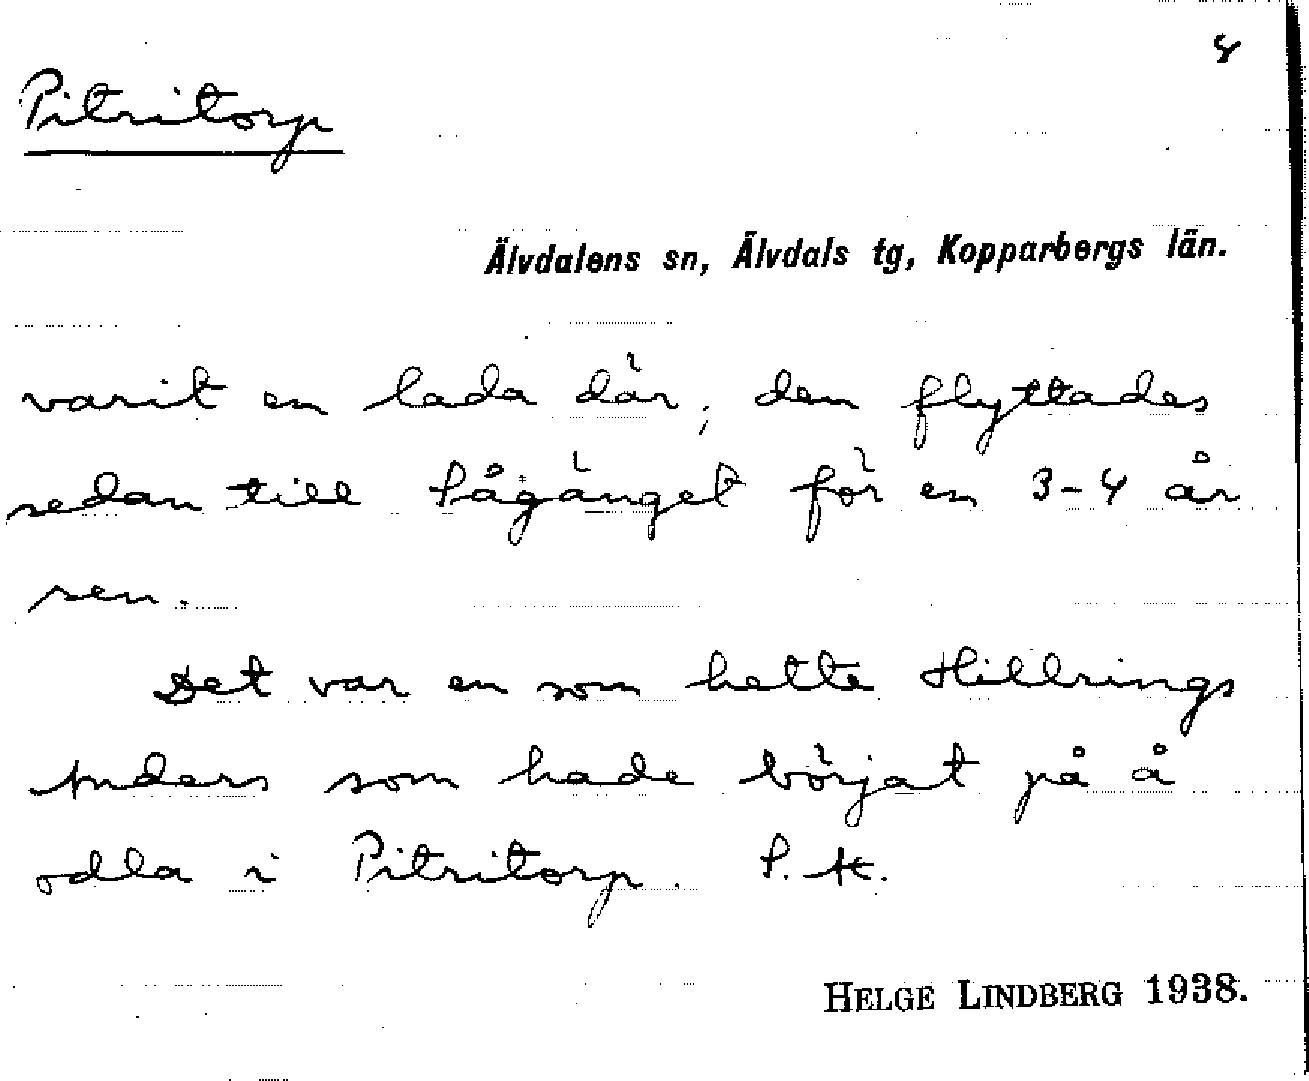 8
Pitritorp
Älvdalens sn, Älvdals tg, Kopparbergs län.
varit en lada där, den flyttades
sedan till Sågänget för en 3-4 år
sen.
Det var en som hette Hillrings
Anders som hade börjat på å
odla i Pitritorp. S. A.
HELGE LINDBERG 1938.